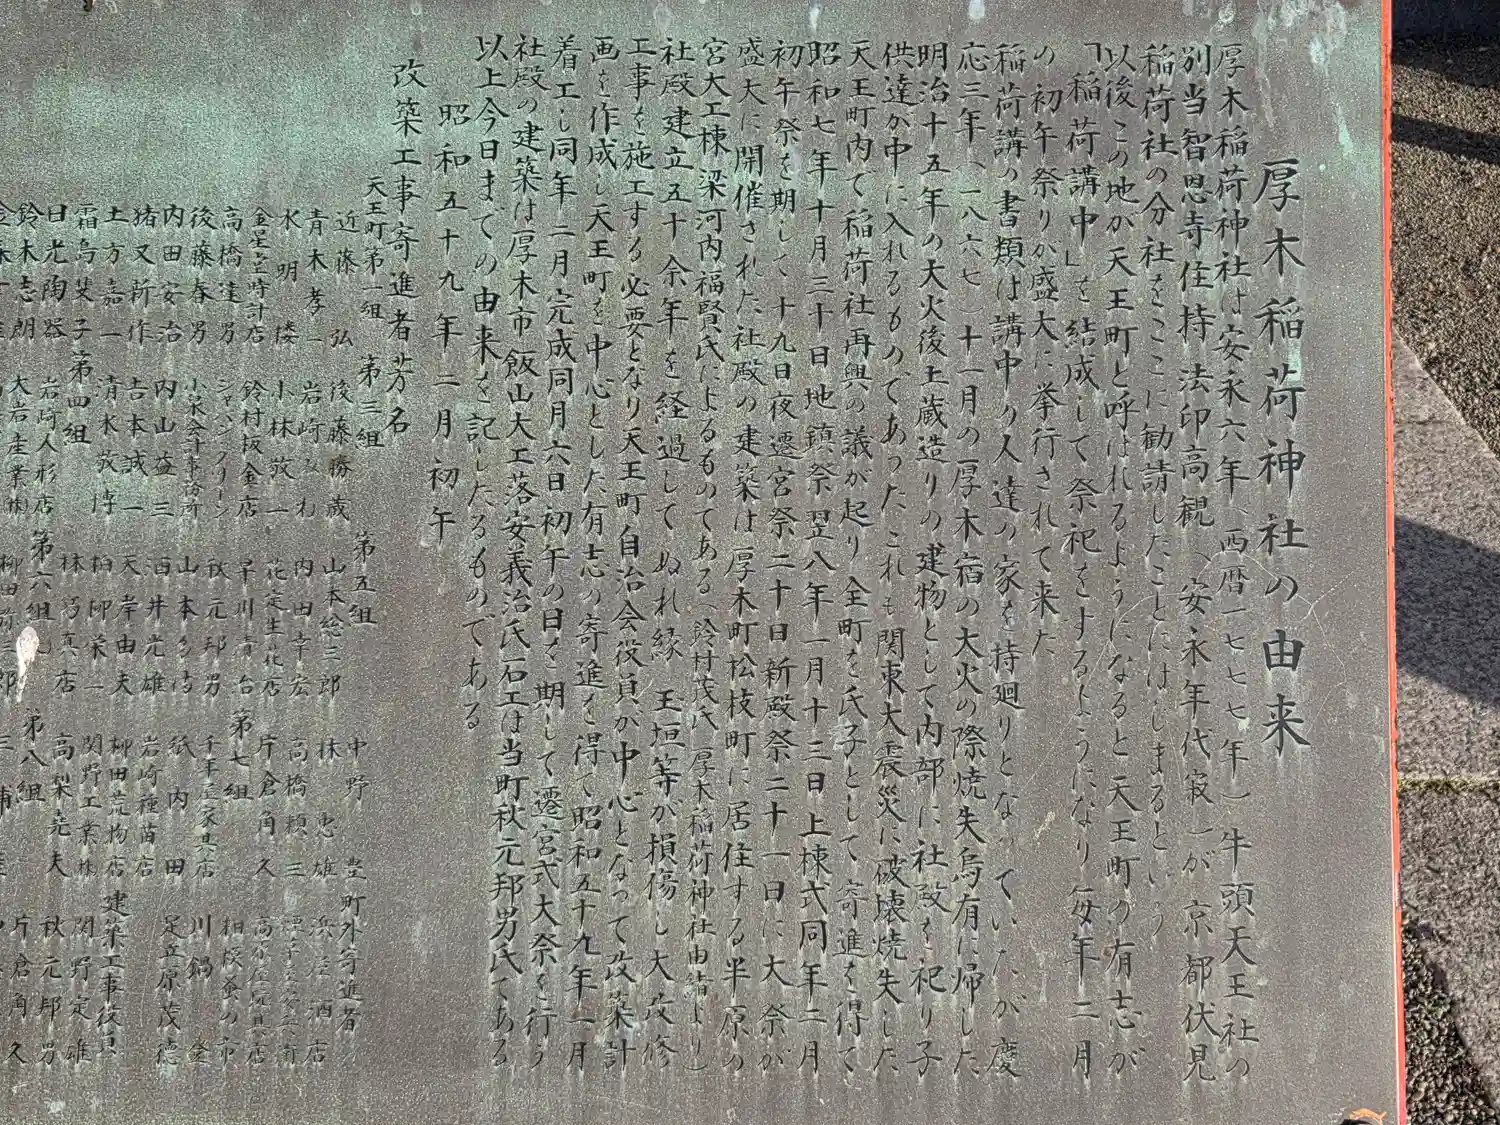 厚木稲荷神社の由来
厚木稲荷神社は安永六年（西暦一七七七年）牛頭天王社の
別当智恩寺住持法印高観（安永年代寂）が京都伏見
稲荷社の分社をここに勧請したことにはじまるという
以後この地が天王町と呼ばれるようになると天王町の有志が
「稲荷講中」を結成して祭祀をするようになり毎年二月
の初午祭りが盛大に挙行されて来た
稲荷講の書類は講中の人達の家を持廻りとなっていたが慶
応三年（一八六七）十一月の厚木宿の大火の際焼失烏有に帰した
明治十五年の大火後土蔵造りの建物として内部に社殿を祀り子
供達が中に入れるものであったこれも関東大震災に破壊焼失した
天王町内で稲荷社再興の議が起り全町を氏子として寄進を得て
昭和七年十月三十日地鎮祭翌八年一月十三日上棟式同年二月
初午祭を期して十九日夜遷宮祭二十日新殿祭二十一日に大祭が
盛大に開催された社殿の建築は厚木町松枝町に居住する半原の
宮大工棟梁河内福賢氏によるものである（鈴村茂氏厚木稲荷神社由緒より）
社殿建立五十余年を経過してぬれ縁 玉垣等が損傷し大改修
工事を施工する必要となり天王町自治会役員が中心となって改築計
画を作成し天王町を中心とした有志の寄進を得て昭和五十九年一月
着工し同年二月完成同月六日初午の日を期して遷宮式大祭を行う
社殿の建築は厚木市飯山大工落安義治氏石工は当町秋元邦男氏である
以上今日までの由来を記したるものである
昭和五十九年二月初午
改築工事寄進者芳名
天王町第一組
近藤弘
青木孝一
水明楼
金星堂時計店
高橋達男
後藤春男
内田安治
猪又新作
土方嘉一
霜島癸子
日光陶器
鈴木志朗
第三組
後藤勝蔵
岩崎みわ
小林敬一
鈴村板金店
シャンクリーン
小泉会計事務所
内山益三
吉本誠一
清水敬博
第四組
岩崎人形店
大岩産業㈱
第五組
山本総三郎
内田幸宏
花定生花店
早川青台
秋元邦男
山本多満
酒井光雄
天岸由夫
柏柳栄一
林写真店
第六組
中野豊
林恵雄
高橋槙三
片倉角久
第七組
千年屋家具店
紙内田
岩崎種苗店
柳田荒物店
関野工業㈱
高梨尭夫
第八組
町外寄進者
浜澄酒店
相模蚕の市
川鍋登
足立原茂徳
建築工事役員
関野定雄
秋元邦男
片倉角久